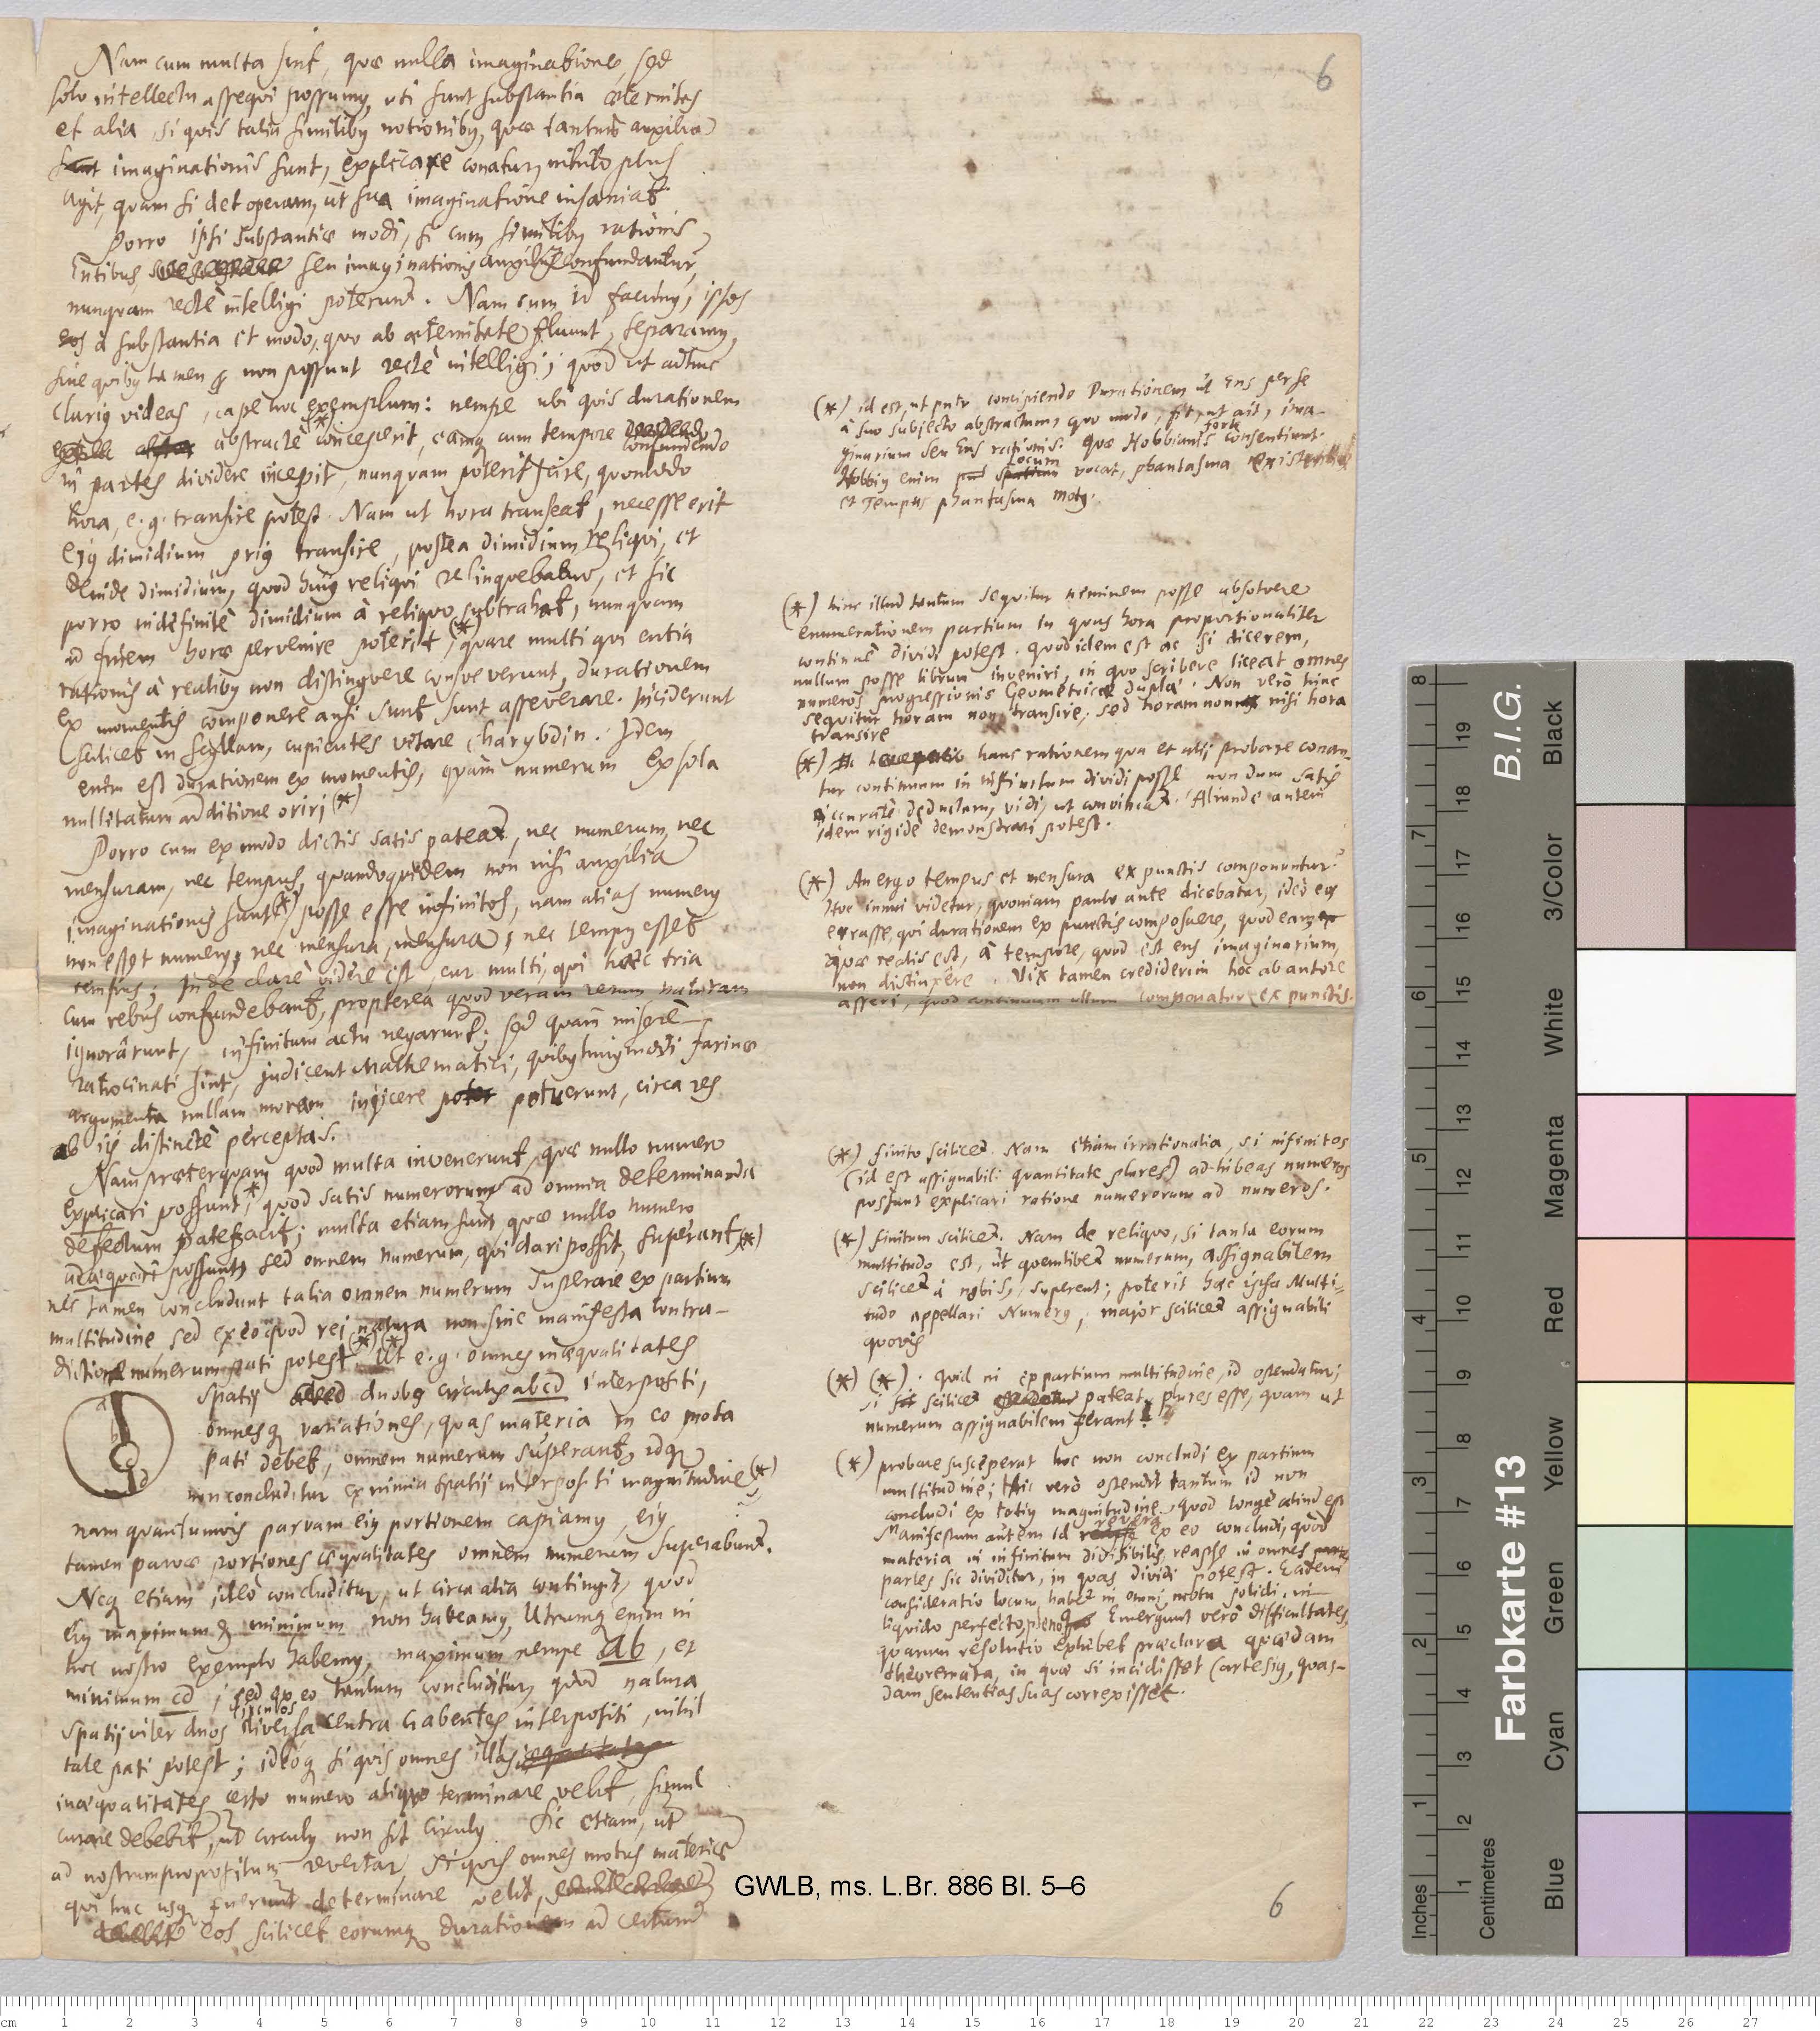 6
Nam cum multa sint, quæ nulla imaginatione, sed
solo intellectu assequi possumus, uti sunt substantia æternitas
et alia, si quis talia similibus notionibus, quæ tantum auxilia
sunt imaginationis sunt, explicare conatur, nihilo plus
agit, quam si det operam, ut sua imaginatione insaniat
Porro ipsi substantiæ modi, si cum similibus rationis
Entibus, seu imaginationis auxiliis confundantur,
nunquam rectè intelligi poterunt. Nam cum id facimus, ipsos
eos à substantia et modo, quo ab æternitate fluunt, separamus,
sine quibus tamen non possunt rectè intelligi; quod ut adhuc
clarius videas, cape hoc exemplum: nempe ubi quis durationem
abstractè (*) conceperit, eamque cum tempore confundendo
in partes dividere inceperit, nunquam poterit scire, quomodo
hora, e.g. transire potest. Nam ut hora transeat, necesse erit
ejus dimidium prius transire, postea dimidium reliqui, et
deinde dimidium, quod hujus reliqui relinquebatur, et sic
porro indefinitè dimidium à reliquo subtrahat, nunquam
ad finem horæ pervenire poterit (*) quare multi qui entia
rationis à realibus non distinguere consueverunt, durationem
ex momentis componere ausi sunt sunt asseverare. Inciderunt
scilicet in Scyllam, cupientes vitare Charybdin. Idem
enim est durationem ex momentis, quam numerum ex sola
nullitatum additione oriri (*)
Porro cum ex modo dictis satis pateat, nec numerum, nec
mensuram, nec tempus, quandoquidem non nisi auxilia
imaginationis sunt (*) posse esse infinitos, nam alias numerus
non esset numerus, nec mensura, mensura, nec tempus esset
tempus; Inde clarè videre est, cur multi, qui hæc tria
cum rebus confundebant, propterea quod veram rerum naturam
ignorârunt, infinitum actu negarunt. sed quàm miserè
ratiocinati sint, judicent Mathematici, quibus hujusmodi farinæ
argumenta nullam moram injicere potuerunt, circa res
ab iis distinctè perceptas.
Nam præterquam quod multa invenerunt, quæ nullo numero
explicari possunt,* quod satis numerorum ad omnia determinanda
defectum patefacit; multa etiam sunt quæ nullo numero
adæquari possunt, sed omnem numerum, qui dari possit, superant, (*)
nec tamen concludunt talia omnem numerum superare ex partium
multitudine sed ex eo quod rei natura non sine manifesta contra-
dictione numerum pati potest (*) (*) Ut e.g. omnes inæqualitates
spatij duobus circulis abcd interpositi,
omnesque variationes, quas materia in eo mota
pati debet, omnem numerum superant, idque
non concluditur ex nimia spatij interpositi magnitudine (*)
nam quantumvis parvam ejus portionem capiamus, ejus
tamen parvæ portiones æqualitates omnem numerum superabunt.
Neque etiam ideò concluditur, ut circa alia contingit, quod
ejus maximum & minimum non habeamus, Utrumque enim in
hoc nostro exemplo habemus, maximum nempe ab, et
minimum cd; sed ex eo tantum concluditur, quod natura
spatij inter duos circulos diversa centra habentes interpositi, nihil
tale pati potest; ideoque si quis omnes illas
inæqualitates certo numero aliquo terminare velit, simul
curare debebit, ut circulus non sit circulus. Sic etiam, ut
ad nostrum propositum revertar, Si quis omnes motus materiæ
qui huc usque fuerunt determinare velit,
eos scilicet eorumque durationem ad certum
a
b
c
d
(*) id est, ut puto concipiendo Durationem ut Ens per se
à suo subjecto abstractum, quo modo, fit, ut ait, ima-
ginarium seu Ens rationis. quæ Hobbianis forte consentiunt.
Hobbius enim Locum vocat, phantasma existentis
et Tempus phantasma motus.
(*) hinc illud tantum sequitur neminem posse absolvere
enumerationem partium in quas hora proportionaliter
continuè dividi potest. quod idem est ac si dicerem,
nullum posse librum inveniri, in quo scribere liceat omnes
numeros progressionis Geometricæ duplæ. Non verò hinc
sequitur horam non transire, sed horam non nisi hora
transire
(*) hanc rationem qua et alij probare conan-
tur continuum in infinitum dividi posse nondum satis
accuratè deductam, vidi, ut convincat. Aliunde autem
idem rigidè demonstrari potest.
(*) An ergo tempus et mensura ex punctis componuntur?
Hoc innui videtur, quoniam paulo ante dicebatur, ideò eos
errasse, qui durationem ex punctis composuere, quod eam
quæ realis est, à tempore, quod est ens imaginarium,
non distinxere. Vix tamen crediderim hoc ab autore
asseri, quod continuum ullum componatur ex punctis.
(*) finito scilicet. Nam etiam irrationalia, si infinitos
(id est assignabili quantitate plures) adhibeas numeros
possunt explicari ratione numerorum ad numeros.
(*) finitum scilicet. Nam de reliquo, si tanta eorum
multitudo est, ut quemlibet numerum, assignabilem
scilicet à nobis, superent; poterit hæc ipsa Multi-
tudo appellari Numerus, major scilicet assignabili
quovis
(*) (*). quid ni ex partium multitudine, id ostendatur;
si scilicet pateat, plures esse, quam ut
numerum assignabilem ferant
(*) probare susceperat hoc non concludi ex partium
multitudine; hic verò ostendit tantum id non
concludi ex totius magnitudine, quod longè aliud est
Manifestum autem id revera ex eo concludi, quod
materia in infinitum divisibilis, reapse in omnes
partes sic dividitur, in quas dividi potest. Eadem
consideratio locum habet in omni motu solidi, in
liquido perfecto, pleno. Emergunt verò difficultates
quarum resolutio exhibet præclara quædam
theoremata, in quæ si incidisset Cartesius, quas-
dam sententias suas correxisset.
GWLB, ms. L.Br. 886 Bl. 5–6
6
B.I.G.
Farbkarte #13
Black
3/Color
White
Magenta
Red
Yellow
Green
Cyan
Blue
8
7
6
5
4
3
2
1
Inches
19
18
17
16
15
14
13
12
11
10
9
8
7
6
5
4
3
2
1
Centimetres
cm 1 2 3 4 5 6 7 8 9 10 11 12 13 14 15 16 17 18 19 20 21 22 23 24 25 26 27